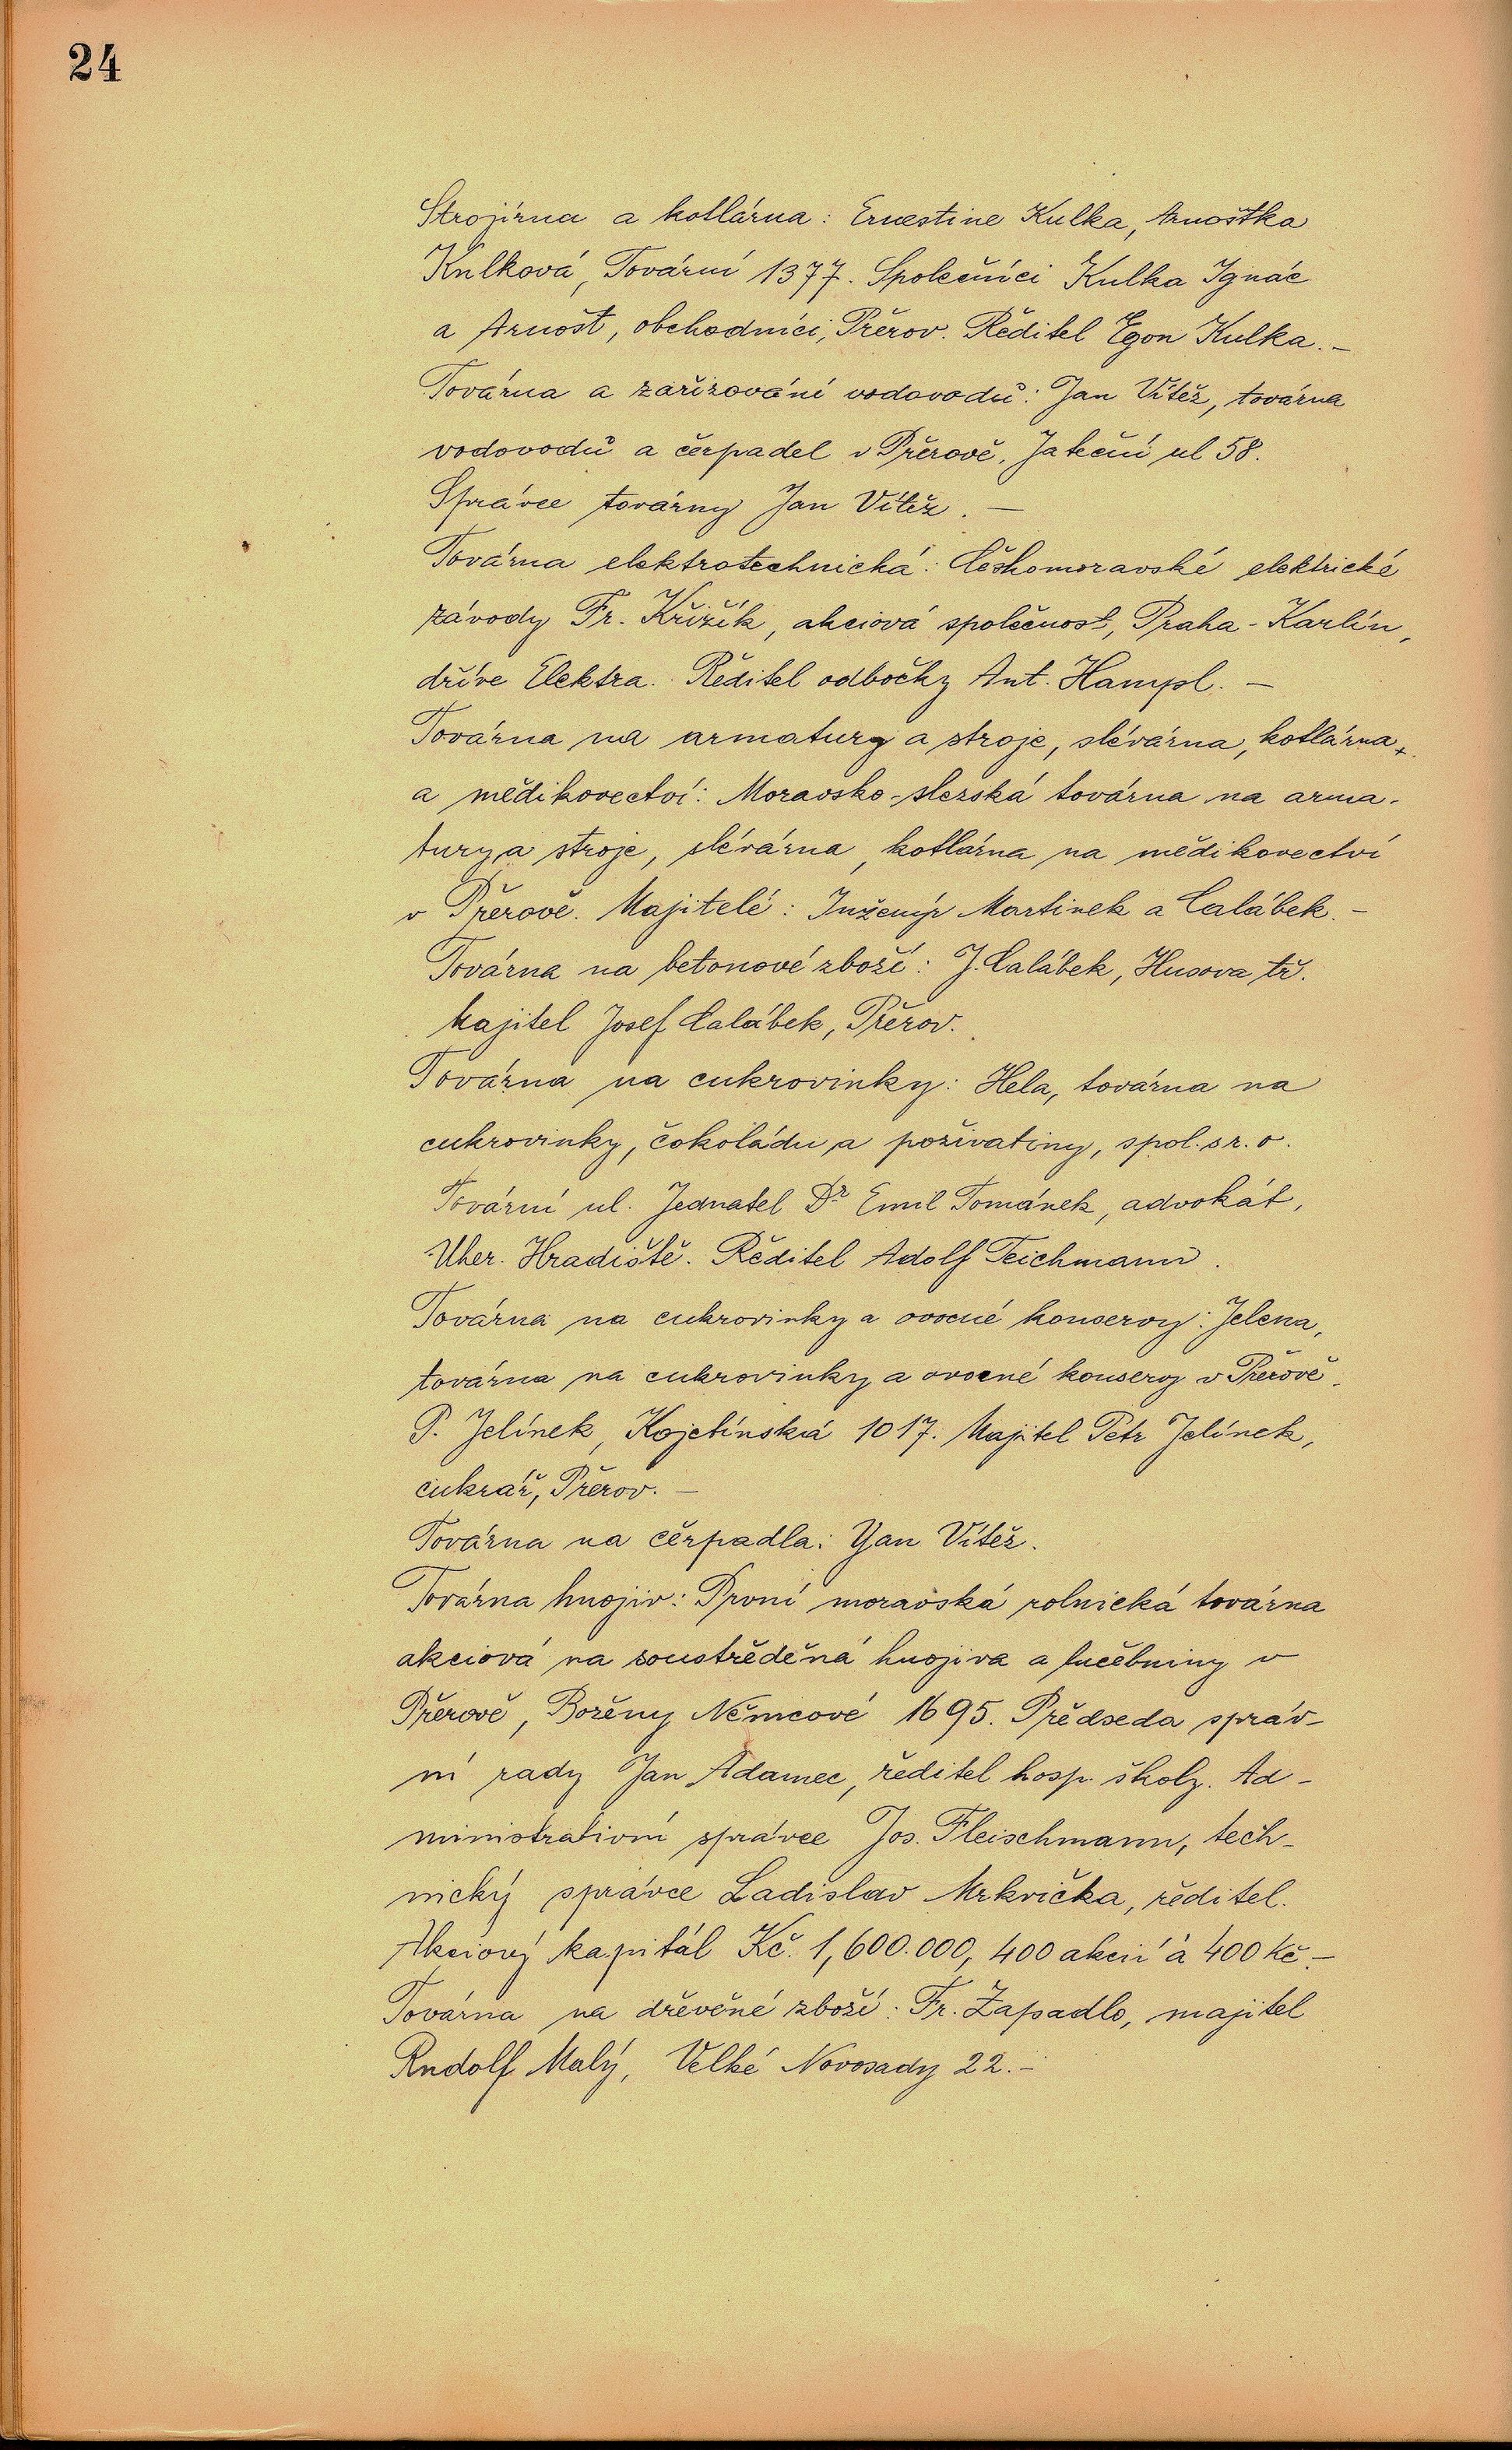 24
Strojírna a kotlárna: Ernestine Kulka, Arnoštka
Kulková, Tovární 1377. Společníci Kulka Ignác
a Arnošt, obchodníci, Přerov. Ředitel Egon Kulka. –
Továrna a zařizování vodovodů: Jan Vítěz, továrna
vodovodů a čerpadel v Přerově, Jateční ul 58.
Správce továrny Jan Vítěz. –
Továrna elektrotechnická: Českomoravské elektrické
závody Fr. Křižík, akciová společnost, Praha-Karlín,
dříve Elektra. Ředitel odbočky Ant. Hampl. –
Továrna na armatury a stroje, slévárna, kotlárna
a mědikovectví: Moravsko-slezská továrna na arma-
tury a stroje, slévárna, kotlárna na mědikovectví
v Přerově. Majitelé: Inženýr Martinek a Calábek. –
Továrna na betonové zboží: J. Calábek, Husova tř.
Majitel Josef Calábek, Přerov.
Továrna na cukrovinky: Hela, továrna na
cukrovinky, čokoládu a poživatiny, spol. s r. o.
Tovární ul. Jednatel Dr Emil Tománek, advokát,
Uher. Hradiště. Ředitel Adolf Teichmann.
Továrna na cukrovinky a ovocné konservy: Jelena,
továrna na cukrovinky a ovocné konservy v Přerově,
P. Jelínek, Kojetínská 1017. Majitel Petr Jelínek,
cukrář, Přerov. –
Továrna na čerpadla: Jan Vítěz.
Továrna hnojiv: První moravská rolnická továrna
akciová na soustředěná hnojiva a lučebniny v
Přerově, Boženy Němcové 1695. Předseda správ-
ní rady Jan Adamec, ředitel hosp. školy. Ad-
ministrativní správce Jos. Fleischmann, tech-
nický správce Ladislav Mrkvička, ředitel.
Akciový kapitál Kč. 1,600.000, 400 akcií à 400 Kč. –
Továrna na dřevěné zboží: Fr. Zapadlo, majitel
Rudolf Malý, Velké Novosady 22. –